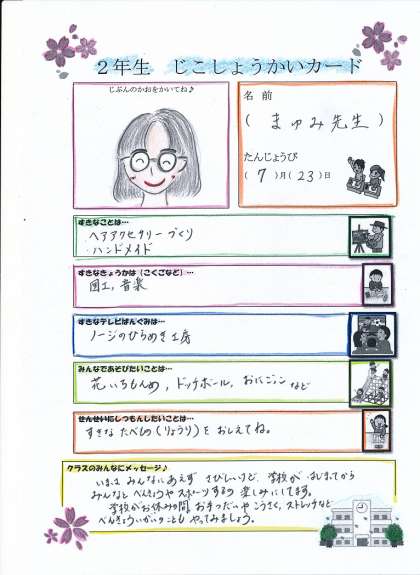 2年生 じこしょうかいカード
じぶんのかおをかいてね♪
名前
( まゆみ先生 )
たんじょうび
( 7 )月( 23 )日
すきなことは…
・ヘアアクセサリーづくり
・ハンドメイド
すきなきょうかは（こくごなど）…
図工、音楽
すきなテレビばんぐみは…
ノージーのひらめき工房
みんなであそびたいことは…
花いちもんめ、ドッチボール、おにごっこ など
せんせいにしつもんしたいことは…
すきな たべもの(りょうり)を おしえてね。
クラスのみんなにメッセージ♪
いまは みんなにあえず さびしいけど、学校が はじまってから
みんなと べんきょうや スポーツするの 楽しみにしてます。
学校がお休みの間、おてつだいや こうさく、ストレッチなど
べんきょういがいのことも やってみましょう。